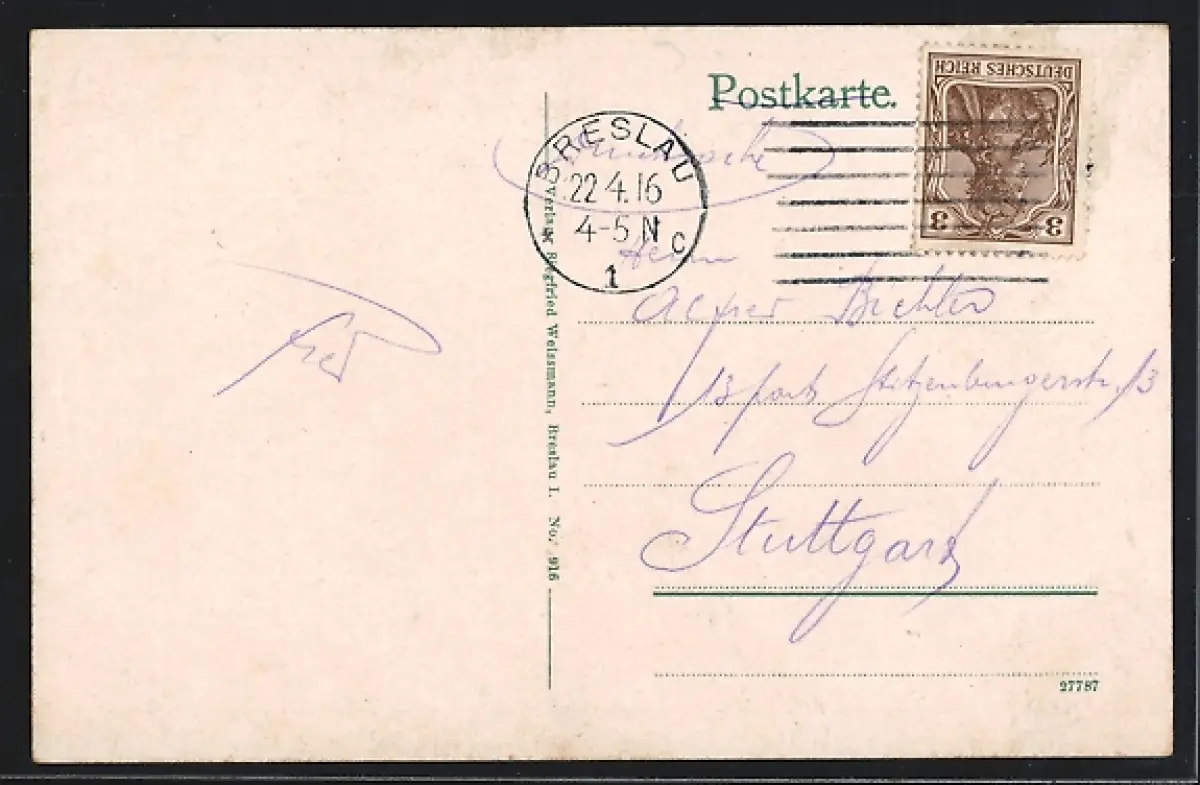 Postkarte.
Drucksache
DEUTSCHES REICH
3 3
BRESLAU
22.4.16
4-5 N
c
1
Herrn
Alfred
Stitzenburgerstr. 13
Stuttgart
Verlag Siegfried Weissmann, Breslau I. No. 916
27787